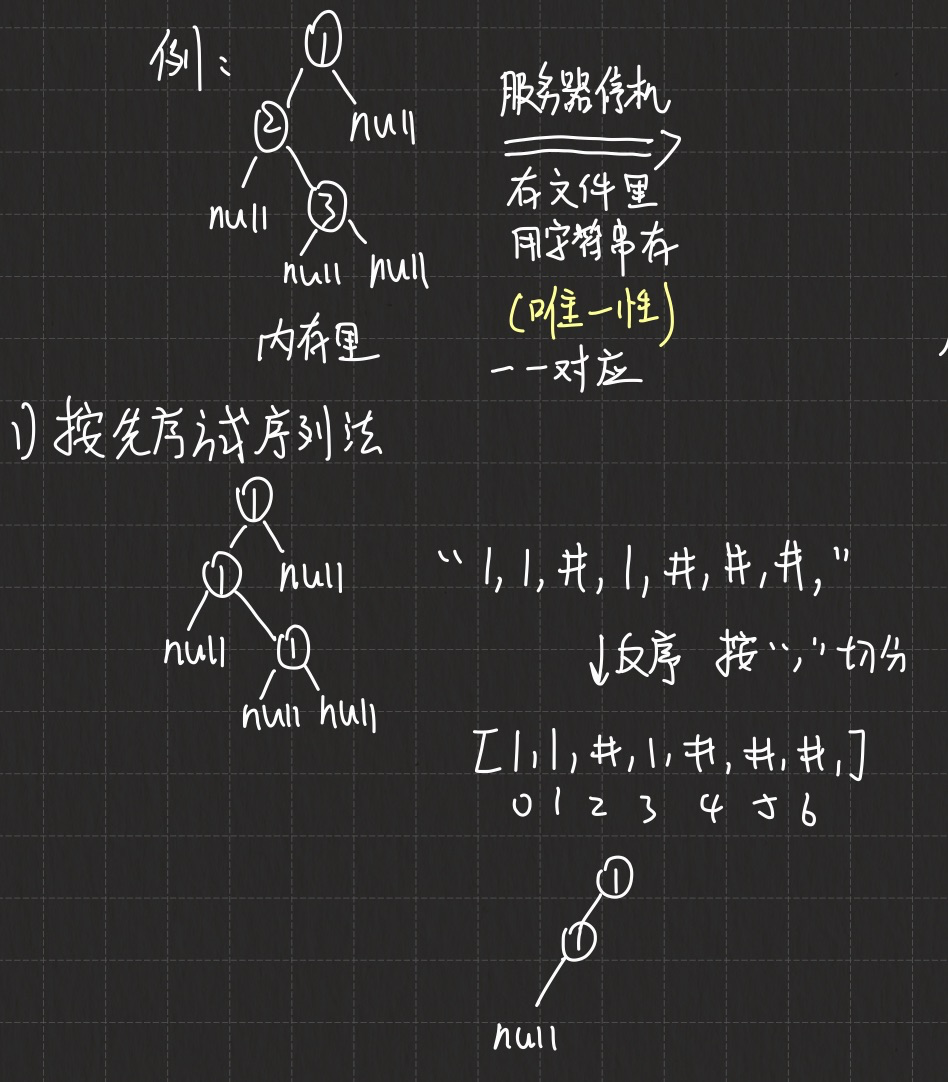 例：
1
2
null
null
3
null null
内存里
服务器停机
存文件里
用字符串存
(唯一性)
一一对应
1) 按先序方式序列法
1
1
null
null
1
null null
“1,1,#,1,#,#,#,”
↓反序 按“,”切分
[1,1,#,1,#,#,#,]
0 1 2 3 4 5 6
1
1
null